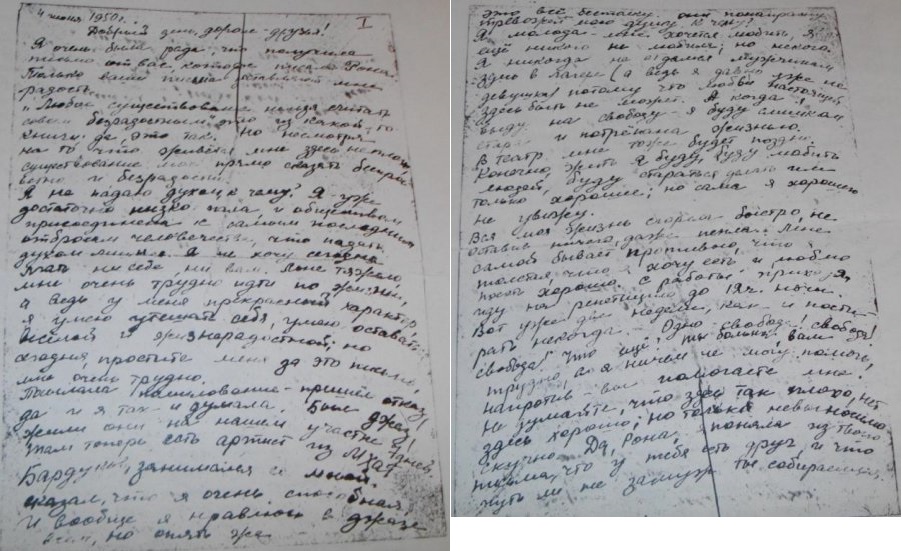 4 июня 1950 г. I
Добрый день, дорогие друзья!
Я очень была рада что получила
письмо от вас которое писала Рона.
Только ваши письма доставляют мне
радость.
"Любое существование нельзя считать
совсем безрадостным" это из какой-то
книги; да это так, но несмотря
на то что живётся мне здесь не плохо,
существование моё прямо сказать бесцве
тно и безрадостно.
Я не падаю духом, к чему? Я уже
достаточно низко пала и обществом
присоединена к самым последним
отбросам человечества, что падать
духом А не хочу сегодня
лгать ни себе, ни вам. Мне тяжело,
мне очень трудно идти по жизни,
а ведь у меня прекрасный характер,
я умею утешать себя, умею оставать
весёлой и жизнерадостной, но
сегодня, простите меня за это письмо,
мне очень трудно.
Писала помилование - пришёл отказ,
да и я так и думала. Был джаз,
жили они на нашем участке
там теперь есть артист из Мхат
занимался со мной,
сказал, что я очень способная
и вообще я нравлюсь в джазе
всем, но опять же
это всё
тревожит мою душу, к чему?
Я молода - мне хочется любить, я
ещё никого не любила; но некого,
я никогда не отдамся мужчинам
здесь в лагере (а ведь я давно уже не
девушка) потому что любви настоящей
здесь быть не может. А когда я
выйду на свободу - я буду слишком
стара и потрёпана жизнью.
В театр мне тоже будет поздно.
Конечно, жить я буду, буду любить
людей, буду стараться делать им
только хорошее; но сама я хорошего
не увижу.
Вся моя жизнь сгорела быстро, не
оставив ничего, даже пепла. Мне
самой бывает противно, что я
толстая что я хочу есть и люблю
поесть хорошо. с работы прихожу,
иду на репетицию до 12 ч. ночи.
Вот уже две недели, как и пости-
рать некогда. Одно свобода! свобода!
свобода! Что ещё? ты больна, вам
трудно, а я ничем не могу помочь,
напротив - вы помогаете мне!
Не думайте, что здесь так плохо, нет
здесь хорошо, но только невыносимо
скучно. Да, Рона, поняла из твоего
письма, что у тебя есть друг, и что
чуть ли не замуж ты собираешься,